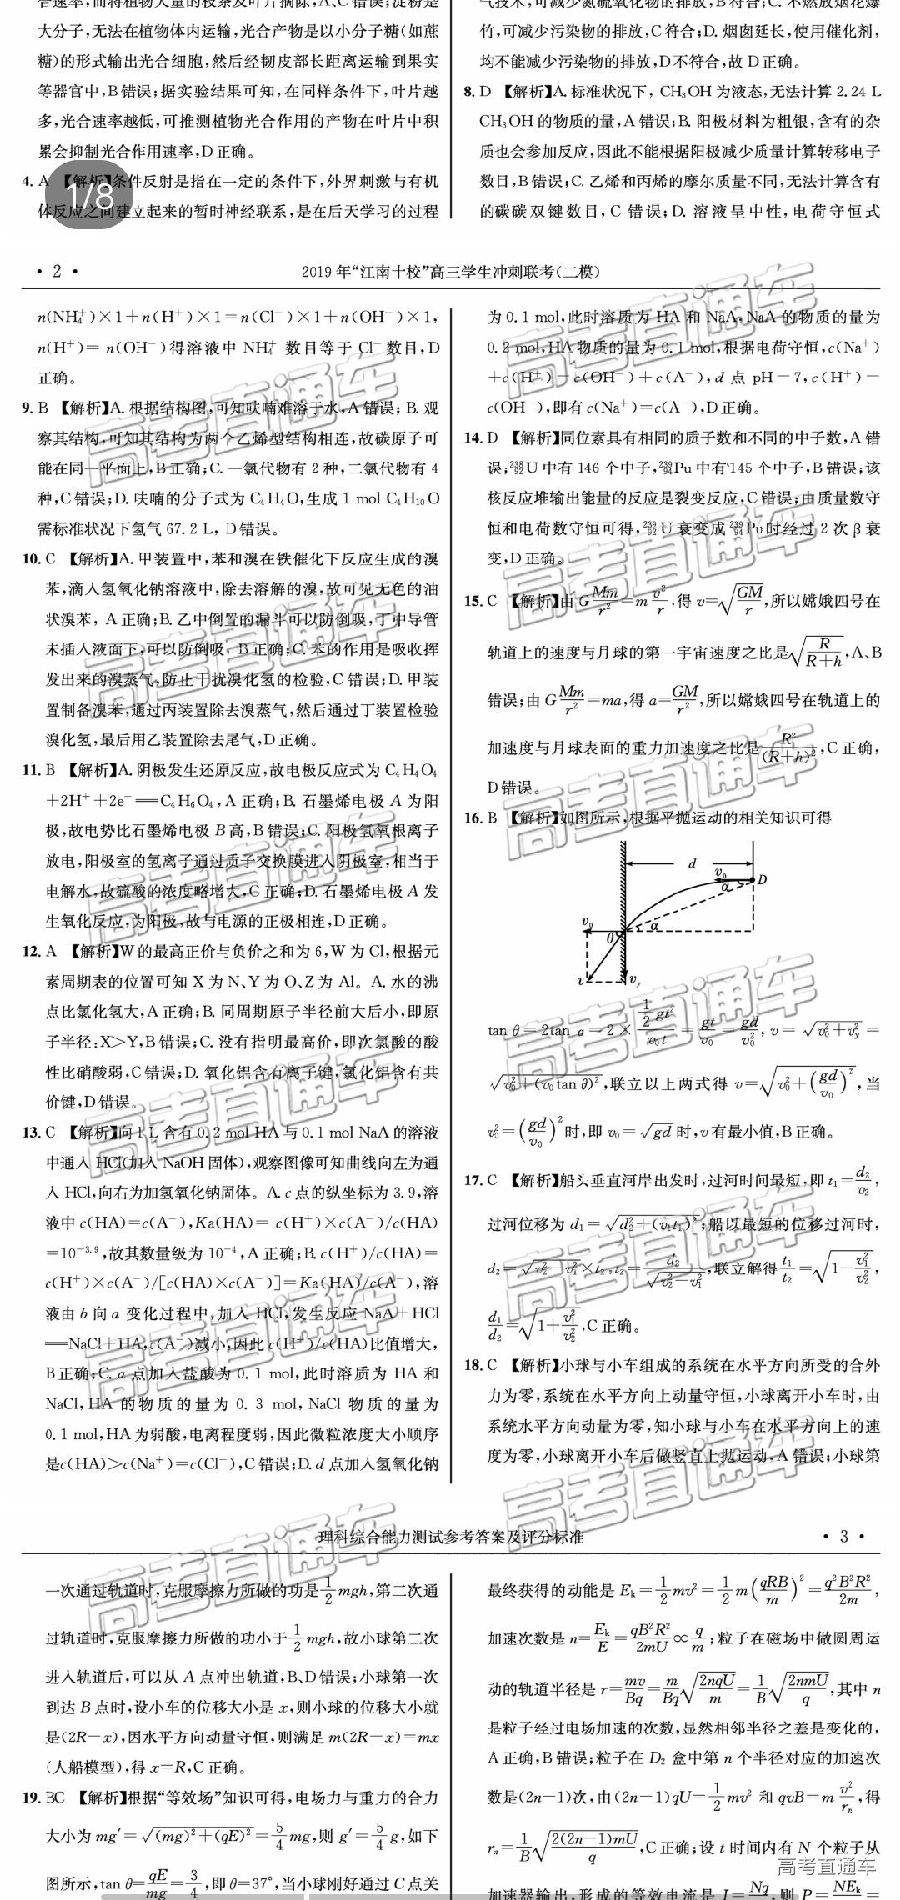 大分子,无法在植物体内运输,光合产物是以小分子糖(如蔗
糖)的形式输出光合细胞,然后经韧皮部长距离运输到果实
等器官中,B错误;据实验结果可知,在同样条件下,叶片越
多,光合速率越低,可推测植物光合作用的产物在叶片中积
累会抑制光合作用速率,D正确。
4. A 【解析】条件反射是指在一定的条件下,外界刺激与有机
体反应之间建立起来的暂时神经联系,是在后天学习的过程
1/8
气技术,可减少氮硫氧化物的排放,B符合;C.不燃放烟花爆
竹,可减少污染物的排放,C符合;D.烟囱延长,使用催化剂,
均不能减少污染物的排放,D不符合,故D正确。
8. D 【解析】A.标准状况下,CH₃OH为液态,无法计算2.24 L
CH₃OH的物质的量,A错误;B.阳极材料为粗银,含有的杂
质也会参加反应,因此不能根据阳极减少质量计算转移电子
数目,B错误;C.乙烯和丙烯的摩尔质量不同,无法计算含有
的碳碳双键数目,C错误;D.溶液呈中性,电荷守恒式
· 2 ·
2019年“江南十校”高三学生冲刺联考(二模)
n(NH₄⁺)×1+n(H⁺)×1=n(Cl⁻)×1+n(OH⁻)×1,
n(H⁺)=n(OH⁻)得溶液中NH₄⁺数目等于Cl⁻数目,D
正确。
9. B 【解析】A.根据结构图,可知呋喃难溶于水,A错误;B.观
察其结构,可知其结构为两个乙烯型结构相连,故碳原子可
能在同一平面上,B正确;C.一氯代物有2种,二氯代物有4
种,C错误;D.呋喃的分子式为C₄H₄O,生成1 mol C₄H₁₀O
需标准状况下氢气67.2 L,D错误。
10. C 【解析】A.甲装置中,苯和溴在铁催化下反应生成的溴
苯,滴入氢氧化钠溶液中,除去溶解的溴,故可见无色的油
状溴苯,A正确;B.乙中倒置的漏斗可以防倒吸,丁中导管
未插入液面下,可以防倒吸,B正确;C.苯的作用是吸收挥
发出来的溴蒸气,防止干扰溴化氢的检验,C错误;D.甲装
置制备溴苯,通过丙装置除去溴蒸气,然后通过丁装置检验
溴化氢,最后用乙装置除去尾气,D正确。
11. B 【解析】A.阴极发生还原反应,故电极反应式为C₄H₄O₄
+2H⁺+2e⁻══C₄H₆O₄,A正确;B.石墨烯电极A为阳
极,故电势比石墨烯电极B高,B错误;C.阳极氢氧根离子
放电,阳极室的氢离子通过质子交换膜进入阴极室,相当于
电解水,故硫酸的浓度略增大,C正确;D.石墨烯电极A发
生氧化反应,为阳极,故与电源的正极相连,D正确。
12. A 【解析】W的最高正价与负价之和为6,W为Cl,根据元
素周期表的位置可知X为N、Y为O、Z为Al。A.水的沸
点比氯化氢大,A正确;B.同周期原子半径前大后小,即原
子半径:X>Y,B错误;C.没有指明最高价,即次氯酸的酸
性比硝酸弱,C错误;D.氧化铝含有离子键,氯化铝含有共
价键,D错误。
13. C 【解析】向1 L含有0.2 mol HA与0.1 mol NaA的溶液
中通入HCl(加入NaOH固体),观察图像可知曲线向左为通
入HCl,向右为加氢氧化钠固体。A.c点的纵坐标为3.9,溶
液中c(HA)=c(A⁻),Ka(HA)=c(H⁺)×c(A⁻)/c(HA)
=10⁻³·⁹,故其数量级为10⁻⁴,A正确;B.c(H⁺)/c(HA)=
c(H⁺)×c(A⁻)/[c(HA)×c(A⁻)]=Ka(HA)/c(A⁻),溶
液由b向a变化过程中,加入HCl,发生反应NaA+HCl
══NaCl+HA,c(A⁻)减小,因此c(H⁺)/c(HA)比值增大,
B正确;C.a点加入盐酸为0.1 mol,此时溶质为HA和
NaCl,HA的物质的量为0.3 mol,NaCl物质的量为
0.1 mol,HA为弱酸,电离程度弱,因此微粒浓度大小顺序
是c(HA)>c(Na⁺)=c(Cl⁻),C错误;D.d点加入氢氧化钠
为0.1 mol,此时溶质为HA和NaA,NaA的物质的量为
0.2 mol,HA物质的量为0.1 mol,根据电荷守恒,c(Na⁺)
+c(H⁺)=c(OH⁻)+c(A⁻),d点pH=7,c(H⁺)=
c(OH⁻),即有c(Na⁺)=c(A⁻),D正确。
14. D 【解析】同位素具有相同的质子数和不同的中子数,A错
误;²³⁸₉₂U中有146个中子,²³⁹₉₄Pu中有145个中子,B错误;该
核反应堆输出能量的反应是裂变反应,C错误;由质量数守
恒和电荷数守恒可得,²³⁹₉₂U衰变成²³⁹₉₄Pu时经过2次β衰
变,D正确。
15. C 【解析】由G Mm/r²=m v²/r,得v=√(GM/r),所以嫦娥四号在
轨道上的速度与月球的第一宇宙速度之比是√(R/(R+h)),A、B
错误;由G Mm/r²=ma,得a=GM/r²,所以嫦娥四号在轨道上的
加速度与月球表面的重力加速度之比是R²/(R+h)²,C正确,
D错误。
16. B 【解析】如图所示,根据平抛运动的相关知识可得
d
v₀
D
α
v₀
O
α
θ
v
vᵧ
tan θ=2tan α=2×(½gt²)/(v₀t)=gt/v₀=gd/v₀²,v=√(v₀²+vᵧ²)=
√(v₀²+(v₀tan θ)²),联立以上两式得v=√(v₀²+(gd/v₀)²),当
v₀²=(gd/v₀)²时,即v₀=√gd时,v有最小值,B正确。
17. C 【解析】船头垂直河岸出发时,过河时间最短,即t₁=d₂/v₂,
过河位移为d₁=√(d₂²+(v₁t₁)²);船以最短的位移过河时,
d₂=√(v₂²−v₁²)×t₂,t₂=d₂/√(v₂²−v₁²),联立解得t₁/t₂=√(1−v₁²/v₂²),
d₁/d₂=√(1+v₁²/v₂²),C正确。
18. C 【解析】小球与小车组成的系统在水平方向所受的合外
力为零,系统在水平方向上动量守恒,小球离开小车时,由
系统水平方向动量为零,知小球与小车在水平方向上的速
度为零,小球离开小车后做竖直上抛运动,A错误;小球第
理科综合能力测试参考答案及评分标准
· 3 ·
一次通过轨道时,克服摩擦力所做的功是½mgh,第二次通
过轨道时,克服摩擦力所做的功小于½mgh,故小球第二次
进入轨道后,可以从A点冲出轨道,B、D错误;小球第一次
到达B点时,设小车的位移大小是x,则小球的位移大小就
是(2R−x),因水平方向动量守恒,则满足m(2R−x)=mx
(人船模型),得x=R,C正确。
19. BC 【解析】根据“等效场”知识可得,电场力与重力的合力
大小为mg′=√((mg)²+(qE)²)=5/4 mg,则g′=5/4 g,如下
图所示,tan θ=qE/mg=3/4,即θ=37°,当小球刚好通过C点关
最终获得的动能是Eₖ=½mv²=½m(qRB/m)²=q²B²R²/2m,
加速次数是n=Eₖ/E=qB²R²/2mU∝q/m;粒子在磁场中做圆周运
动的轨道半径是r=mv/Bq=m/Bq √(2nqU/m)=1/B √(2nmU/q),其中n
是粒子经过电场加速的次数,显然相邻半径之差是变化的,
A正确,B错误;粒子在D₂盒中第n个半径对应的加速次
数是(2n−1)次,由(2n−1)qU=½mv²和qvB=m v²/rₙ,得
rₙ=1/B √(2(2n−1)mU/q),C正确;设t时间内有N个粒子从
加速器输出,形成的等效电流是I=Nq/t,则P=NEₖ/t=
高考直通车